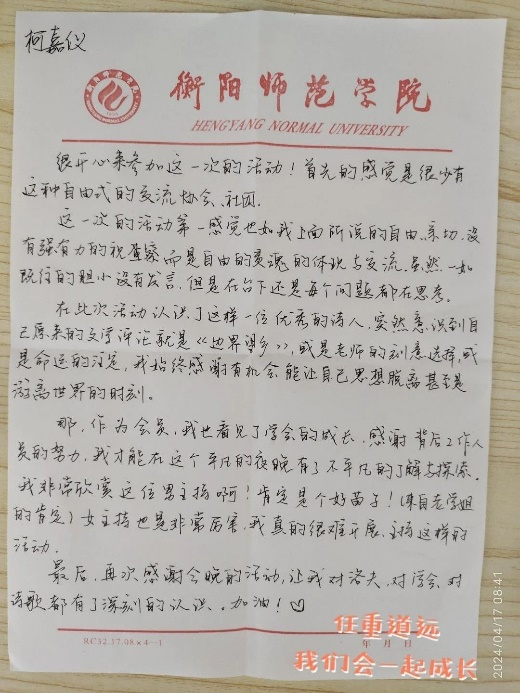 柯嘉仪
衡阳师范学院
HENGYANG NORMAL UNIVERSITY
很开心来参加这一次的活动！首先的感觉是很少有
这种自由式的交流协会、社团.
这一次的活动第一感觉也如我上面所说的自由、亲切.没
有强有力的视察察而是自由的灵魂的体现与交流.虽然一如
既往的胆小没有发言，但是在台下还是每个问题都在思考。
在此次活动认识了这样一位优秀的诗人，突然意识到自
己原来的文学评论就是《边界望乡》，或是老师的刻意选择，或
是命运的注定，我始终感谢有机会能让自己思想脱离甚至是
游离世界的时刻。
那，作为会员，我也看见了学会的成长，感谢背后工作人
员的努力，我才能在这个平凡的夜晚有了不平凡的了解与探索。
我非常欣赏这位男主持啊！肯定是个好苗子！（来自老学姐
的肯定）女主持也是非常厉害，我真的很难开展、主持这样的
活动.
最后，再次感谢今晚的活动，让我对洛夫、对学会、对
诗歌都有了深刻的认识、。加油！♡
RC32.17.08×4-1
年 月 日
任重道远
我们会一起成长
2024/04/17 08:41